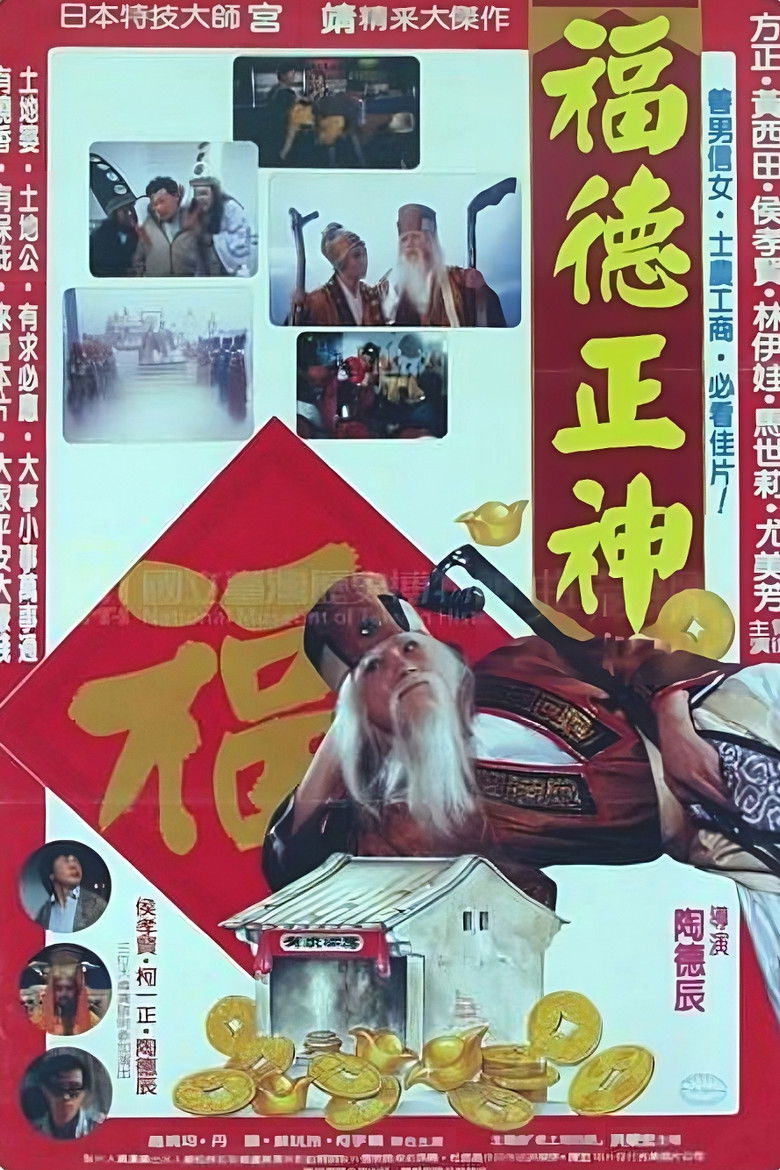 日本特技大師宮 靖精采大傑作
福德正神
善男信女・士農工商・必看佳片！
方正・黃西田・侯孝賢・林伊娃・馬世莉・尤美芳 主演
土地婆・土地公・有求必應・大事小事萬事通
有燒香・有保庇・來看本片・大家平安大賺錢
福
侯孝賢・柯一正・陶德辰
導演
陶德辰